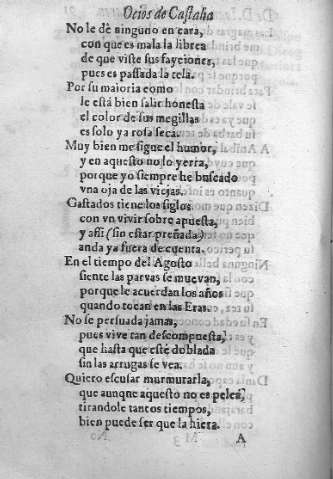 Ocios de Castalia
No le dè ninguno en cara,
con que es mala la librea
de que viste sus fayciones,
pues es passada la tela.
Por su maioria como
le està bien salir honesta
el color de sus megillas
es solo ya rosa seca.
Muy bien me sigue el humor,
y en aquesto no lo yerra,
porque yo siempre he buscado
vna oja de las viejas.
Gastados tiene los siglos
con vn vivir sobre apuesta,
y assi (sin estar preñada)
anda ya fuera de cuenta.
En el tiempo del Agosto
siente las parvas se muevan,
porque le acuerdan los años
quando tocan en las Eras.
No se persuada jamas,
pues vive tan descompuesta,
que hasta que estè doblada
sin las arrugas se vea.
Quiero escusar murmurarla,
que aunque aquesto no es pelea,
tirandole tantos tiempos,
bien puede ser que la hiera.
A